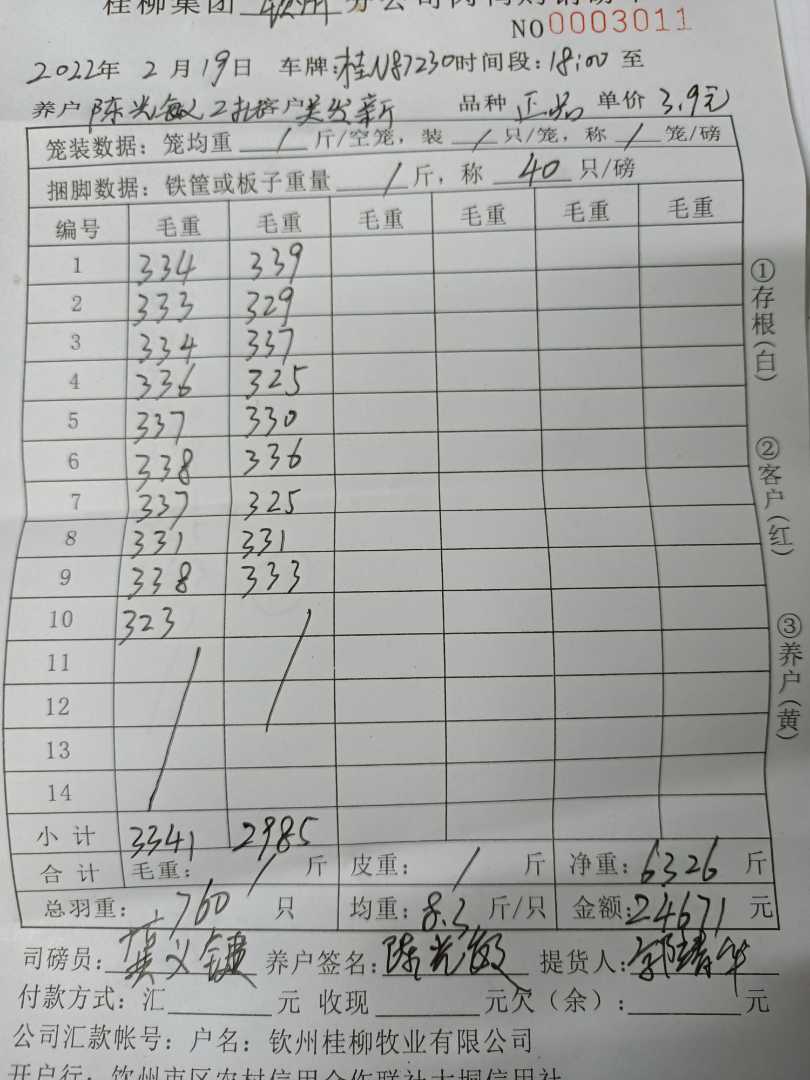 桂柳集团 钦州 分公司肉鸭购销磅单
NO0003011
2022年 2月19日 车牌:桂N87230时间段:18:00至
养户 陈光敏 客户 发新 品种 正品 单价 3.9元
笼装数据:笼均重 / 斤/空笼,装 / 只/笼,称 / 笼/磅
捆脚数据:铁筐或板子重量 / 斤,称 40 只/磅
编号 毛重 毛重 毛重 毛重 毛重 毛重
1 334 339
2 333 329
3 334 337
4 336 325
5 337 330
6 338 336
7 337 325
8 331 331
9 338 333
10 323
11
12
13
14
小计 3341 2985
合计 毛重: / 斤 皮重: / 斤 净重:6326 斤
总羽重: 760 只 均重:8.3 斤/只 金额:24671 元
司磅员: 养户签名:陈光敏 提货人:郭靖华
付款方式:汇 元 收现 元欠(余): 元
公司汇款帐号:户名:钦州桂柳牧业有限公司
开户行:钦州市区农村信用合作联社大垌信用社
①存根(白)
②客户(红)
③养户(黄)